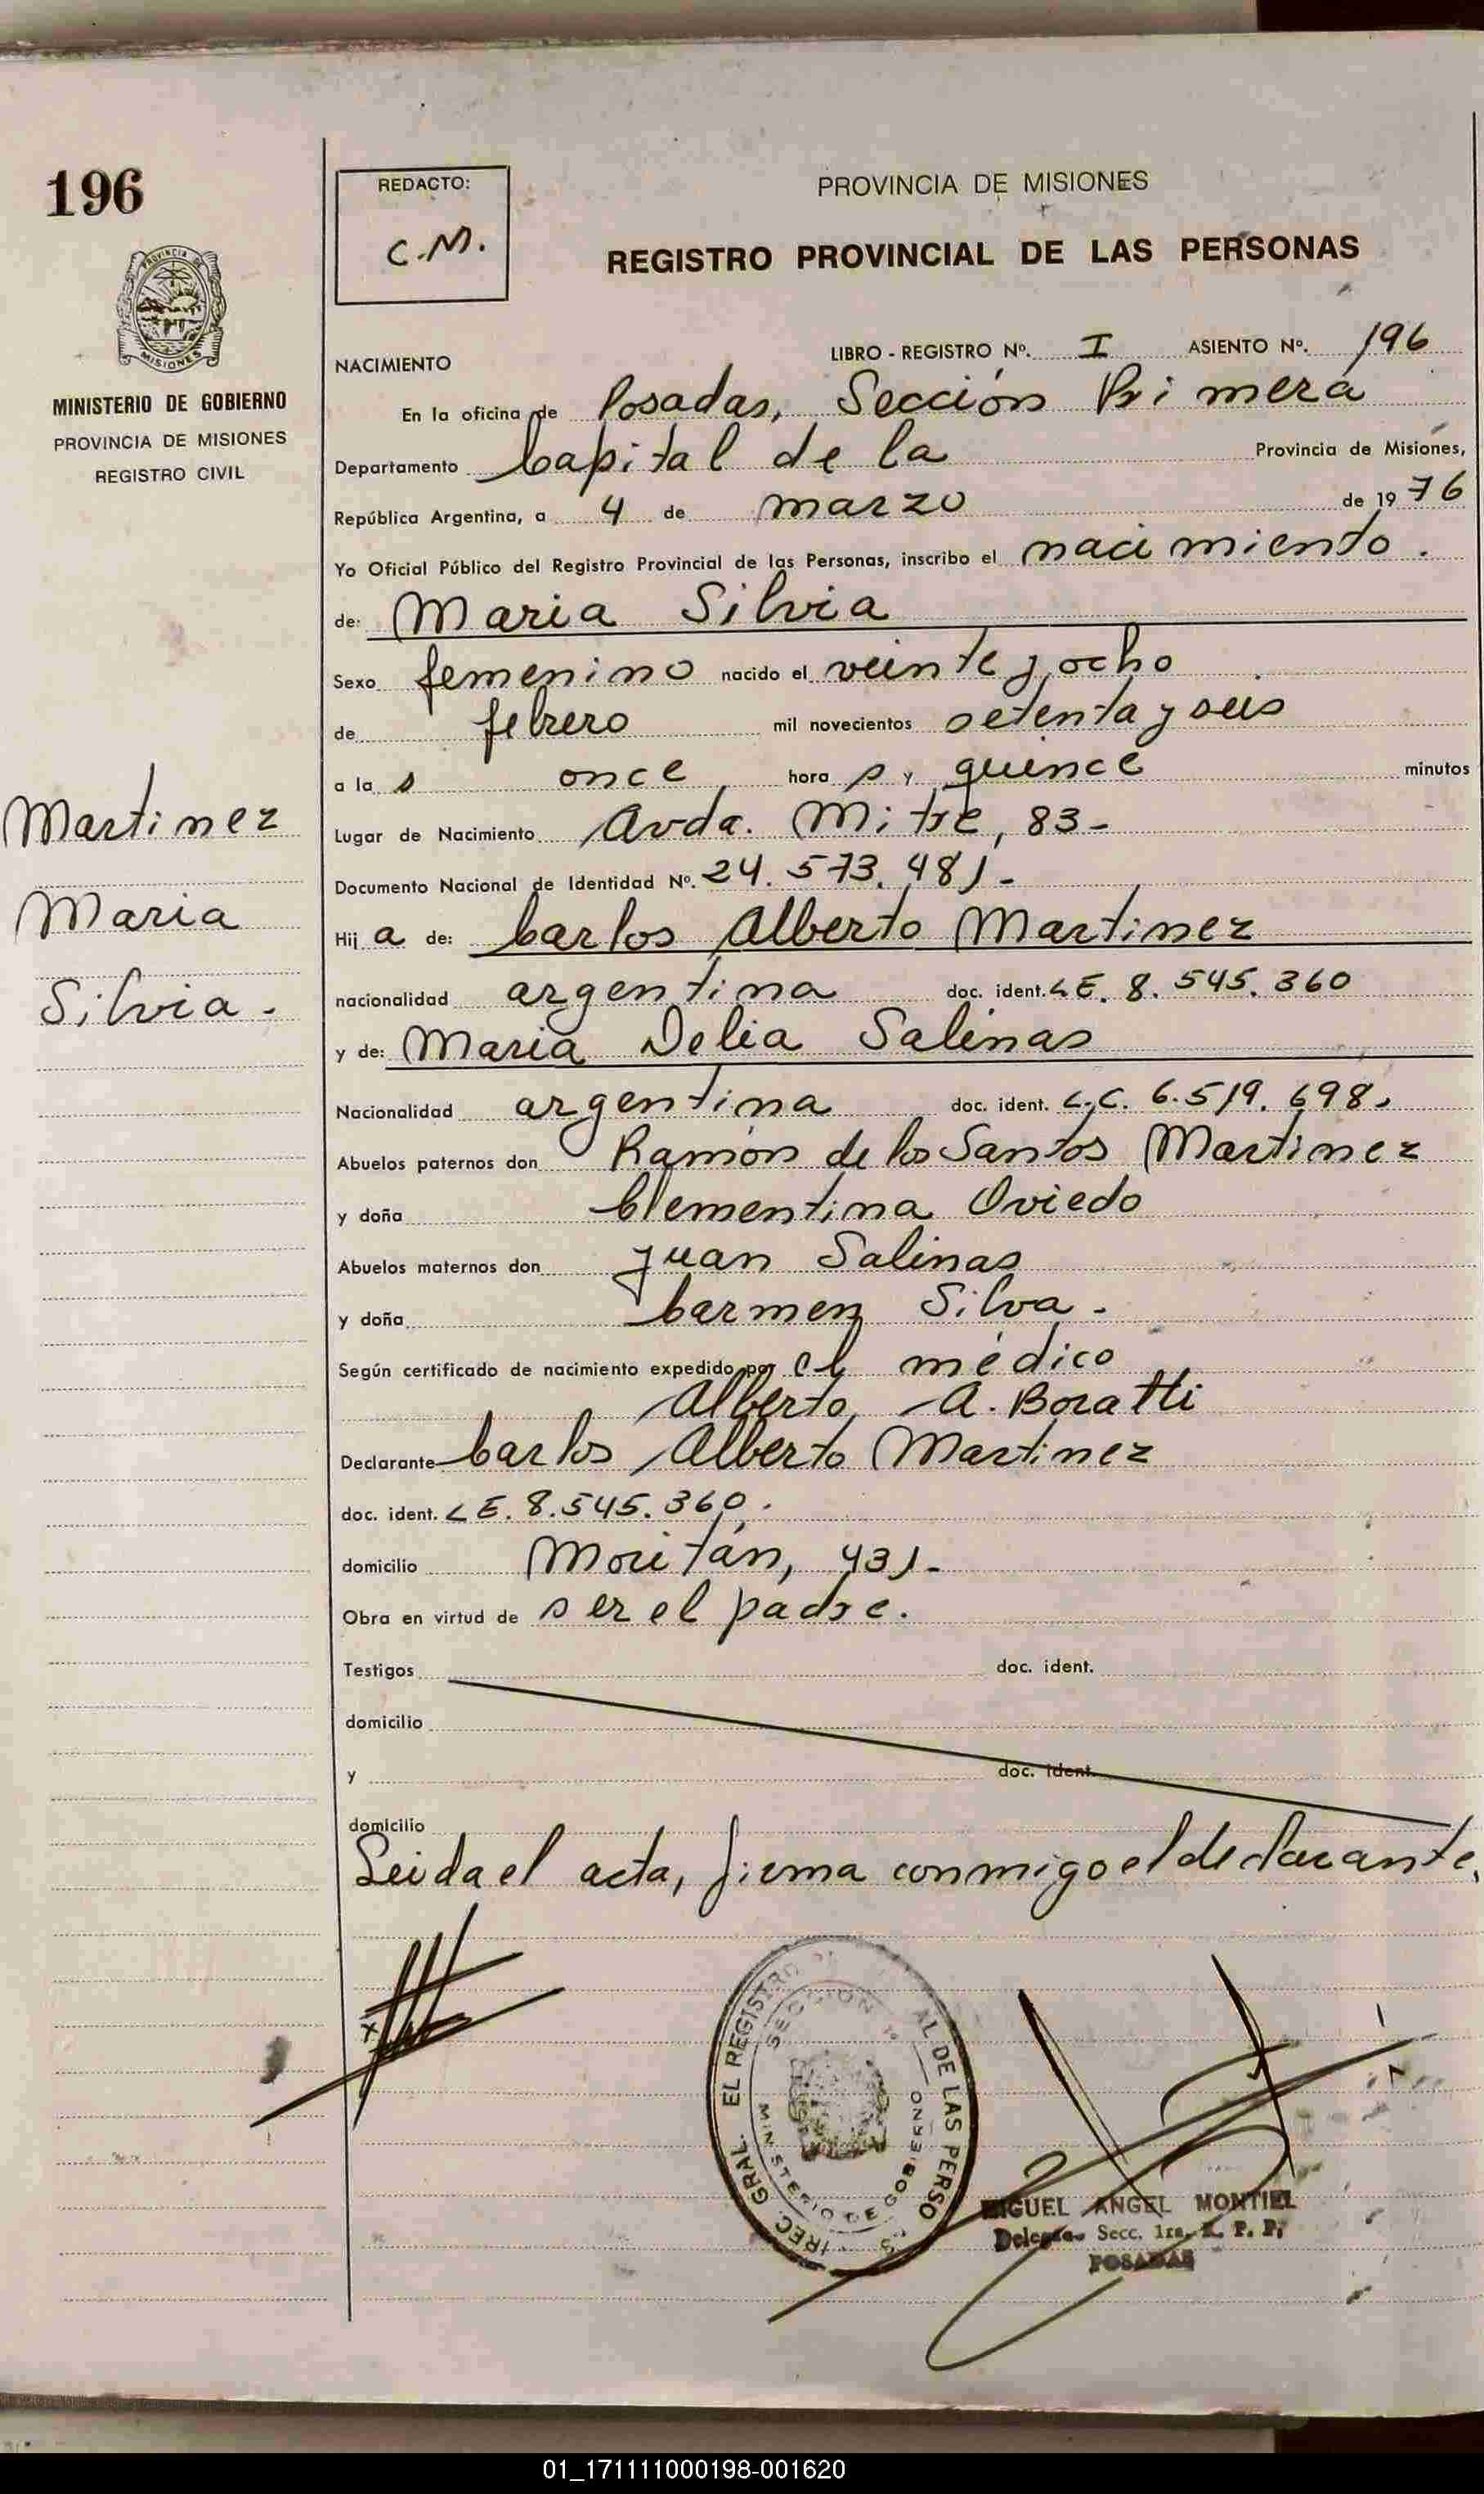 196
REDACTO:
C.M.
PROVINCIA DE MISIONES
REGISTRO PROVINCIAL DE LAS PERSONAS
PROVINCIA DE
MISIONES
MINISTERIO DE GOBIERNO
PROVINCIA DE MISIONES
REGISTRO CIVIL
NACIMIENTO LIBRO - REGISTRO Nº. I ASIENTO Nº. 196
En la oficina de Posadas, Sección Primera
Departamento Capital de la Provincia de Misiones,
República Argentina, a 4 de marzo de 1976
Yo Oficial Público del Registro Provincial de las Personas, inscribo el nacimiento.
de: Maria Silvia
Sexo femenino nacido el veinte y ocho
de febrero mil novecientos setenta y seis
a la s once hora s y quince minutos
Lugar de Nacimiento Avda. Mitre, 83-
Documento Nacional de Identidad Nº. 24.573.481-
Hij a de: Carlos Alberto Martinez
nacionalidad argentina doc. ident. LE. 8.545.360
y de: Maria Delia Salinas
Nacionalidad argentina doc. ident. L.C. 6.519.698.
Abuelos paternos don Ramón de los Santos Martinez
y doña Clementina Oviedo
Abuelos maternos don Juan Salinas
y doña Carmen Silva.
Según certificado de nacimiento expedido por el médico
Alberto A. Boratti
Declarante Carlos Alberto Martinez
doc. ident. LE. 8.545.360.
domicilio Moritán, 431-
Obra en virtud de ser el padre.
Testigos doc. ident.
domicilio
y doc. ident.
domicilio
Leida el acta, firma conmigo el declarante.
Martinez
Maria
Silvia.
x
DIREC. GRAL. EL REGISTRO AL DE LAS PERSO S
SECCION 1º
MINISTERIO DE GOBIERNO
MIGUEL ANGEL MONTIEL
Delegado Secc. 1ra. R. P. P.
POSADAS
01_171111000198-001620